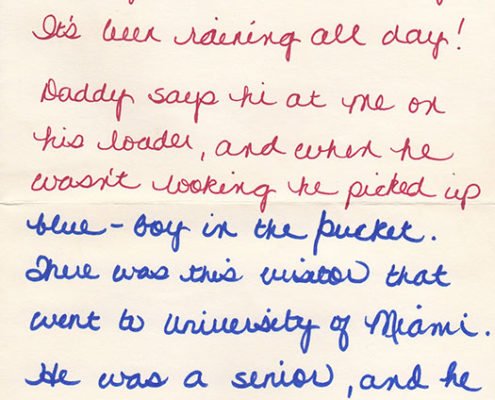 It's been raining all day!
Daddy says hi at me on
his loader, and when he
wasn't looking he picked up
blue-boy in the bucket.
There was this visitor that
went to University of Miami.
He was a senior, and he